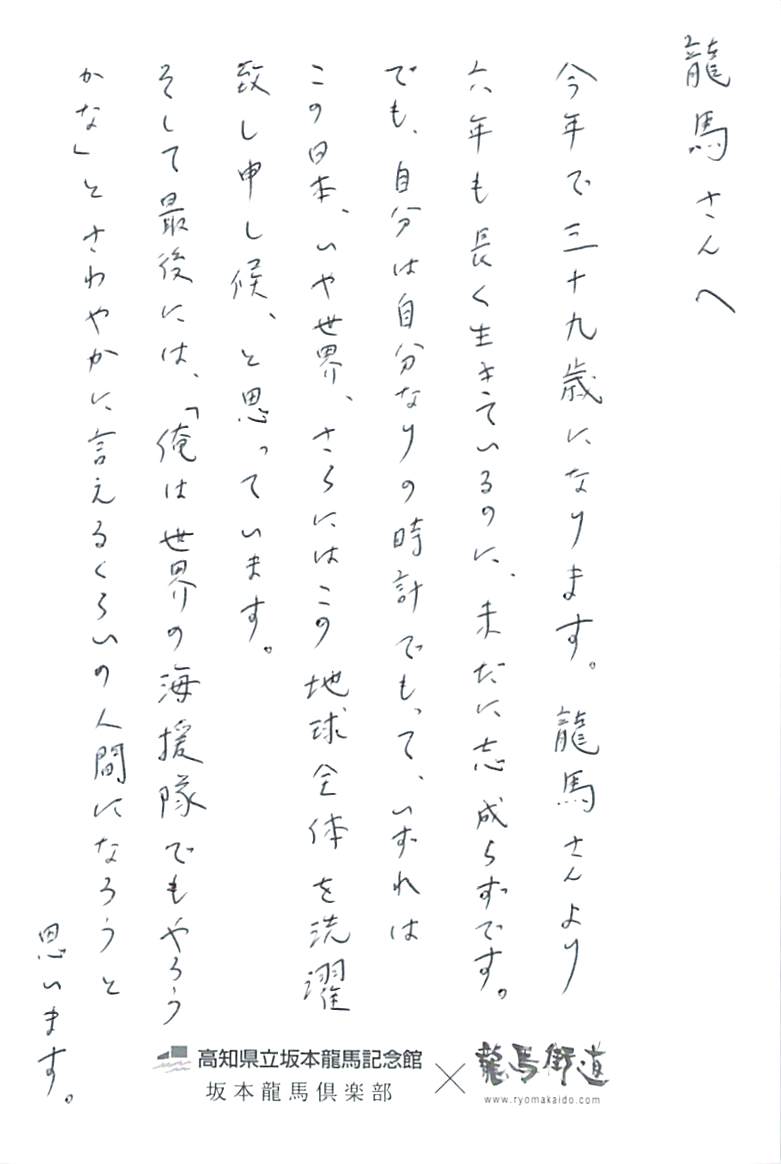 龍馬さんへ
今年で三十九歳になります。龍馬さんより
六年も長く生きているのに、未だに志成らずです。
でも、自分は自分なりの時計でもって、いずれは
この日本、いや世界、さらにはこの地球全体を洗濯
致し申し候、と思っています。
そして最後には、「俺は世界の海援隊でもやろう
かな」とさわやかに言えるくらいの人間になろうと
思います。
高知県立坂本龍馬記念館
坂本龍馬倶楽部
×
龍馬街道
www.ryomakaido.com